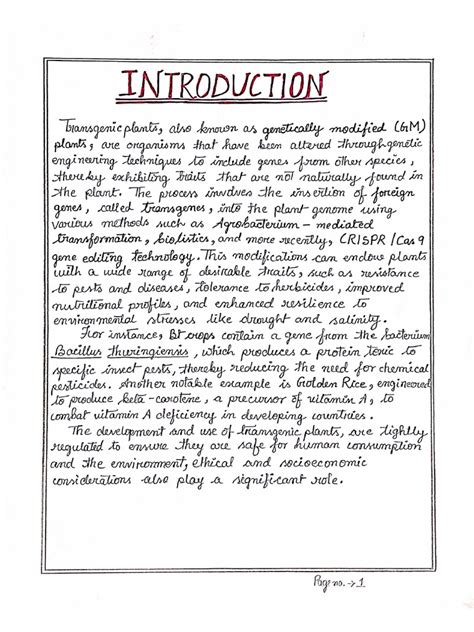 INTRODUCTION
Transgenic plants, also known as genetically modified (GM)
plants, are organisms that have been altered through genetic
engineering techniques to include genes from other species,
thereby exhibiting traits that are not naturally found in
the plant. The process involves the insertion of foreign
genes, called transgenes, into the plant genome using
various methods such as Agrobacterium - mediated
transformation, biolistics, and more recently, CRISPR/Cas9
gene editing technology. This modifications can endow plants
with a wide range of desirable traits, such as resistance
to pests and diseases, tolerance to herbicides, improved
nutritional profiles, and enhanced resilience to
environmental stresses like drought and salinity.
For instance, Bt crops contain a gene from the bacterium
Bacillus Thuringiensis, which produces a protein toxic to
specific insect pests, thereby reducing the need for chemical
pesticides. Another notable example is Golden Rice, engineered
to produce beta-carotene, a precursor of vitamin A, to
combat vitamin A deficiency in developing countries.
The development and use of transgenic plants, are tightly
regulated to ensure they are safe for human consumption
and the environment, ethical and socioeconomic
considerations also play a significant role.
Page no. → 1